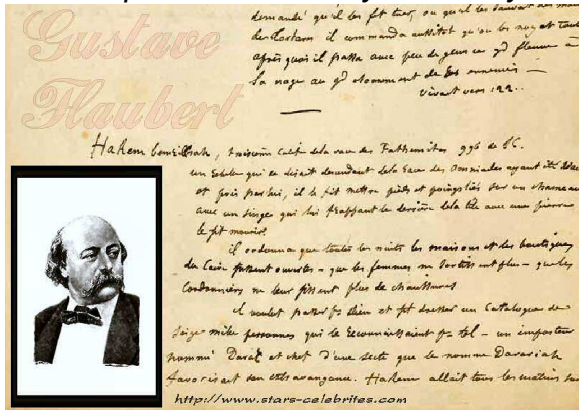 Gustave
Flaubert
demandé qu'il les fit tuer, ou qu'il les sauvât des mains
des Tartares il commanda aussitôt qu'on les noyât tous
après quoi il passa avec peu de gens ce gd fleuve à
la nage au gd étonnement de ses ennemis —
vivait vers 122..
Hakem, troisième Calife de la race des Fathémites 996 de J.C.
un rebelle qui se disait descendant de la race des Ommiades ayant été
et pris par lui, il le fit mettre pieds et poings liés sur un chameau
avec un singe qui lui frappant le derrière de la tête avec une pierre
le fit mourir.
il ordonna que toutes les nuits les maisons et les boutiques
du Caire fussent ouvertes - que les femmes ne sortissent plus - que les
cordonniers ne leur fissent plus de chaussures
il voulut passer pr Dieu et fit dresser un Catalogue de
seize mille personnes qui le reconnaissaient pr tel - un imposteur
nommé et chef d'une secte que se nomme Darariah
favorisait son extravagance. Hakem allait tous les matins sur
http://www.stars-celebrites.com